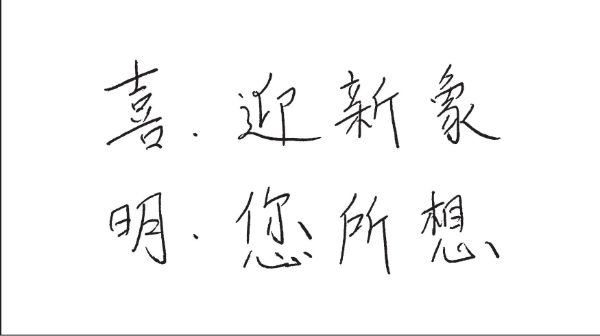 喜.迎新象
明.您所想